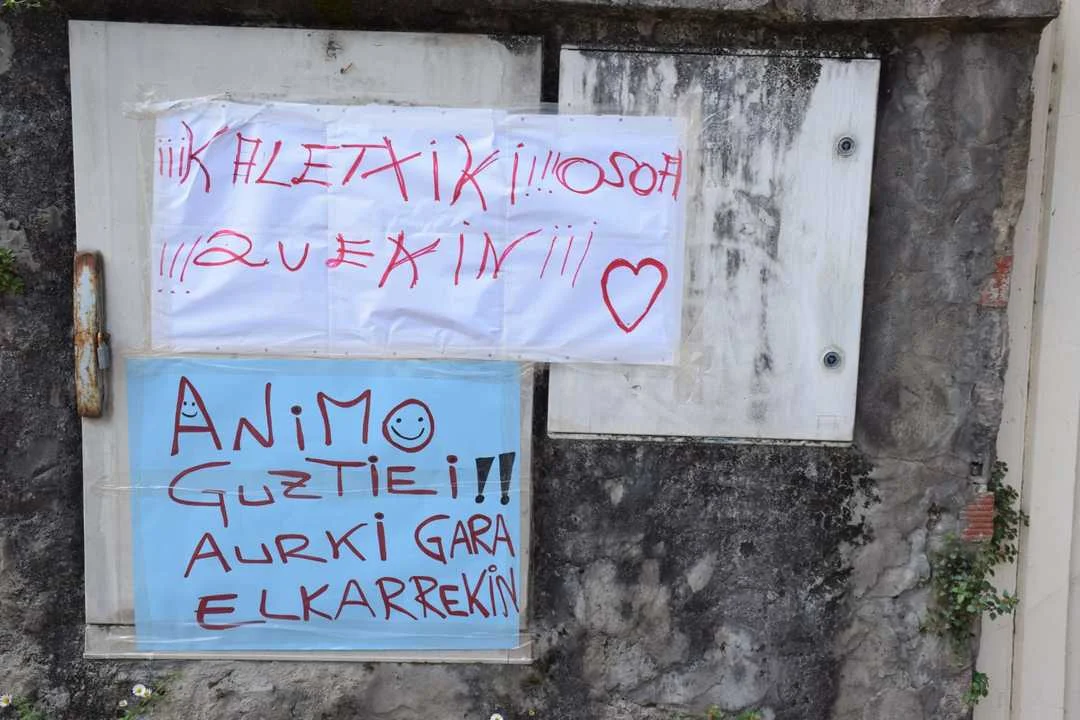 ¡¡¡KALETXiKi!!!OSOA
!!!ZUEKiN¡¡¡
ANiMO
GUZTIEi!!
AURKi GARA
ELKARREKiN